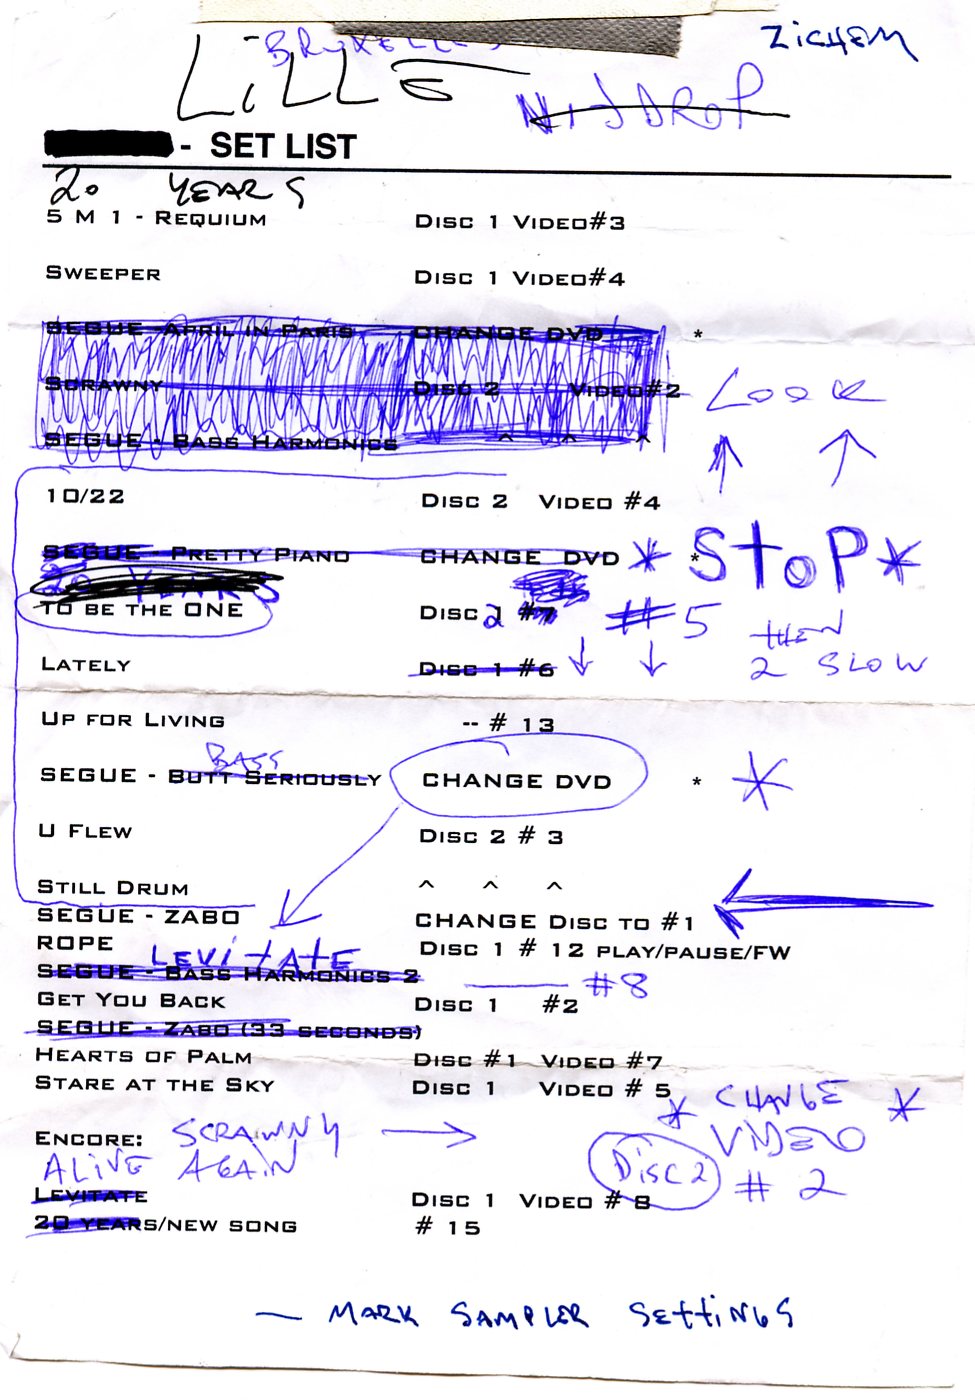 BRUXELLES ZICHEM
LiLLE
NijDROP
- SET LIST
20 YEARS
5 M 1 - REQUIUM DISC 1 VIDEO#3
SWEEPER DISC 1 VIDEO#4
SEGUE -APRIL IN PARIS CHANGE DVD *
SCRAWNY DISC 2 VIDEO#2 LOOK
SEGUE - BASS HARMONICS ^ ^ ^
10/22 DISC 2 VIDEO #4
SEGUE - PRETTY PIANO CHANGE DVD * * StoP *
20 YEARS
TO BE THE ONE DISC 2 # 5 then
LATELY DISC 1 #6 2 SLOW
UP FOR LIVING -- # 13
BASS
SEGUE - BUTT SERIOUSLY CHANGE DVD * *
U FLEW DISC 2 # 3
STILL DRUM ^ ^ ^
SEGUE - ZABO CHANGE DISC TO #1
ROPE DISC 1 # 12 PLAY/PAUSE/FW
LEVITATE
SEGUE - BASS HARMONICS 2 #8
GET YOU BACK DISC 1 #2
SEGUE - ZABO (33 SECONDS)
HEARTS OF PALM DISC #1 VIDEO #7
STARE AT THE SKY DISC 1 VIDEO # 5
* CHANGE *
ENCORE: SCRAWNY VIDEO
ALIVE AGAIN Disc 2 # 2
LEVITATE DISC 1 VIDEO # 8
20 YEARS/NEW SONG # 15
— MARK SAMPLER SETTINGS